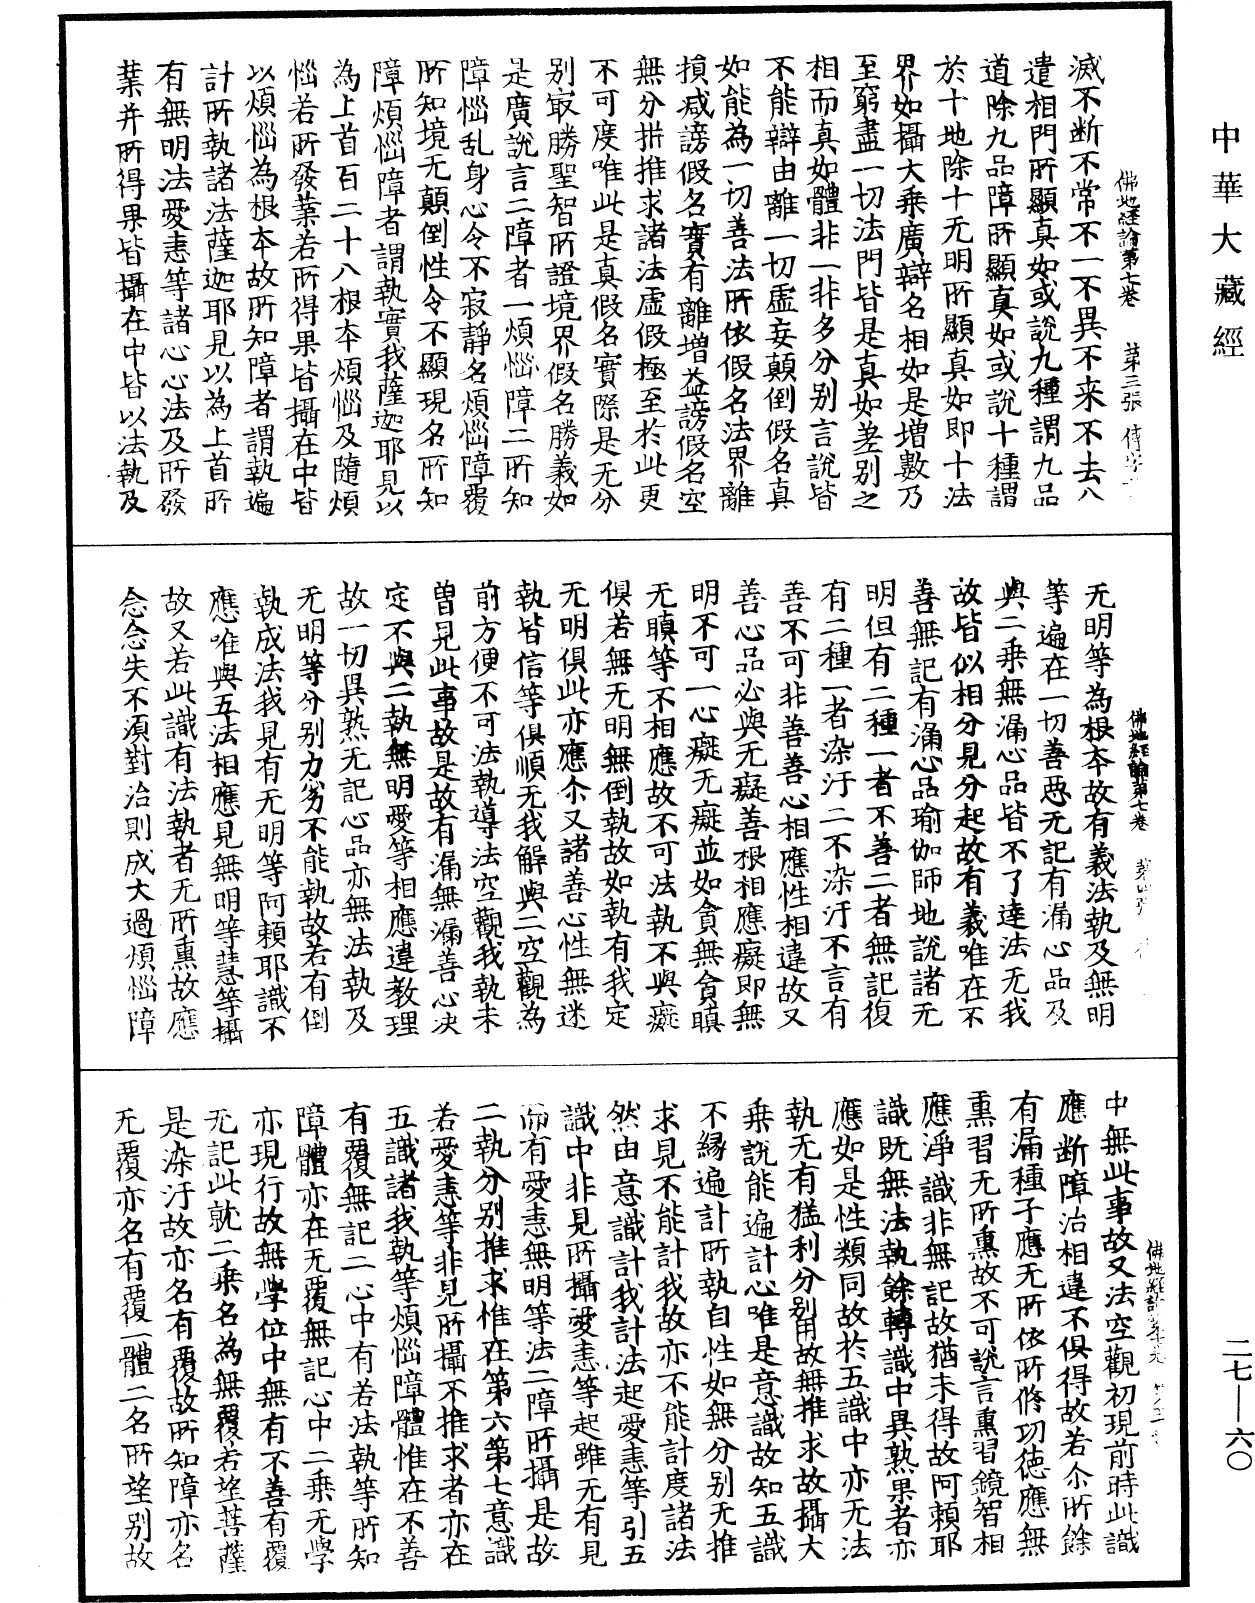 中華大藏經
佛地經論第七卷 第三張
滅不断不常不一不異不来不去八
遣相門所顯真如或說九種謂九品
道除九品障所顯真如或說十種謂
於十地除十无明所顯真如即十法
界如攝大乘廣辯名相如是增數乃
至窮盡一切法門皆是真如差别之
相而真如體非一非多分别言說皆
不能辯由離一切虛妄顛倒假名真
如能為一切善法所依假名法界離
損減謗假名實有離增益謗假名空
無分拼推求諸法虛假極至於此更
不可度唯此是真假名實際是无分
别寂勝聖智所證境界假名勝義如
是廣說言二障者一煩惱障二所知
障惱乱身心令不寂静名煩惱障覆
所知境无顛倒性令不顯現名所知
障煩惱障者謂執實我薩迦耶見以
為上首百二十八根本煩惱及隨煩
惱若所發業若所得果皆攝在中皆
以煩惱為根本故所知障者謂執遍
計所執諸法薩迦耶見以為上首所
有無明法愛恚等諸心心法及所發
業并所得果皆攝在中皆以法執及
佛地經論第七卷 第四張
无明等為根本故有義法執及無明
等遍在一切善惡无記有漏心品及
與二乘無漏心品皆不了達法无我
故皆似相分見分起故有義唯在不
善無記有漏心品瑜伽師地說諸无
明但有二種一者不善二者無記復
有二種一者染汙二不染汙不言有
善不可非善善心相應性相違故又
善心品必與无癡善根相應癡即無
明不可一心癡无癡並如貪無貪瞋
无瞋等不相應故不可法執不與癡
俱若無无明無倒執故如執有我定
无明俱此亦應尒又諸善心性無迷
執皆信等俱順无我解與二空觀為
前方便不可法執導法空觀我執未
曽見此事故是故有漏無漏善心决
定不與二執無明愛等相應違教理
故一切異熟无記心品亦無法執及
无明等分别力劣不能執故若有倒
執成法我見有无明等阿頼耶識不
應唯與五法相應見無明等慧等攝
故又若此識有法執者无所熏故應
念念失不須對治則成大過煩惱障
中無此事故又法空觀初現前時此識
應断障治相違不俱得故若尒所餘
有漏種子應无所依所修功德應無
熏習无所熏故不可說言熏習鏡智相
應淨識非無記故猶未得故阿頼耶
識既無法執餘轉識中異熟果者亦
應如是性類同故於五識中亦无法
執无有猛利分别用故無推求故攝大
乘說能遍計心唯是意識故知五識
不緣遍計所執自性如無分别无推
求見不能計我故亦不能計度諸法
然由意識計我計法起愛恚等引五
識中非見所攝愛恚等起雖无有見
而有愛恚無明等法二障所攝是故
二執分别推求惟在第六第七意識
若愛恚等非見所攝不推求者亦在
五識諸我執等煩惱障體惟在不善
有覆無記二心中有若法執等所知
障體亦在无覆無記心中二乘无學
亦現行故無學位中無有不善有覆
无記此就二乘名為無覆若望菩薩
是染汙故亦名有覆故所知障亦名
无覆亦名有覆一體二名所望别故
二七—六〇